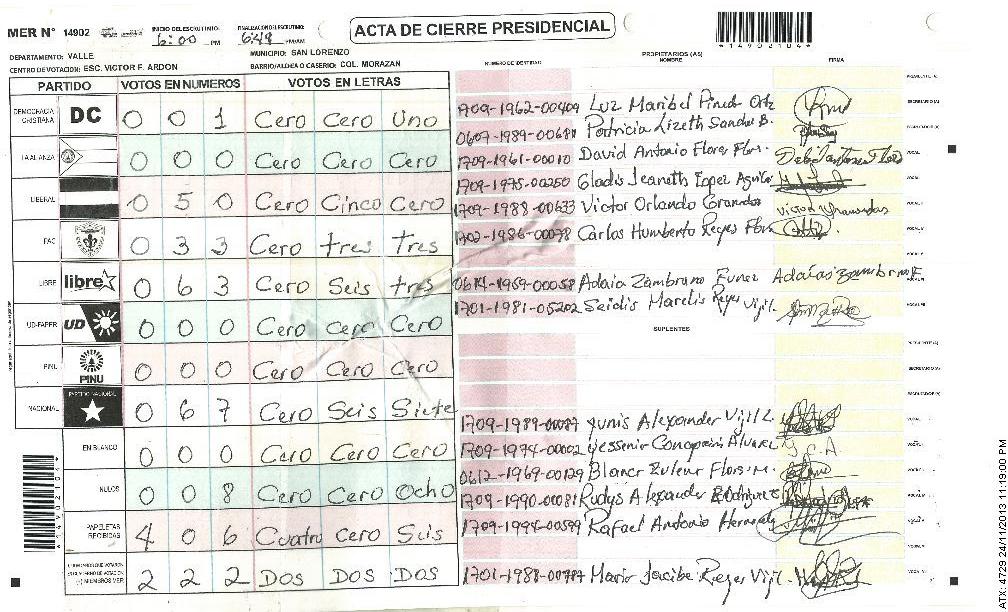 MER N° 14902 INICIO DEL ESCRUTINIO: 6:00 PM FINALIZACION ESCRUTINIO: 6:49 PM/AM ACTA DE CIERRE PRESIDENCIAL *14902104*
DEPARTAMENTO: VALLE MUNICIPIO: SAN LORENZO
CENTRO DE VOTACION: ESC. VICTOR F. ARDON BARRIO/ALDEA O CASERIO: COL. MORAZAN
PARTIDO VOTOS EN NUMEROS VOTOS EN LETRAS
DEMOCRACIA CRISTIANA DC 0 0 1 Cero Cero Uno
LA ALIANZA 0 0 0 Cero Cero Cero
LIBERAL 0 5 0 Cero Cinco Cero
PAC 0 3 3 Cero tres tres
LIBRE libre 0 6 3 Cero Seis tres
UD-FAPER UD 0 0 0 Cero Cero Cero
PINU PINU 0 0 0 Cero Cero Cero
NACIONAL PARTIDO NACIONAL 0 6 7 Cero Seis Siete
EN BLANCO 0 0 0 Cero Cero Cero
NULOS 0 0 8 Cero Cero Ocho
PAPELETAS RECIBIDAS 4 0 6 Cuatro Cero Seis
CIUDADANOS QUE VOTARON 2 2 2 DOS DOS DOS
(+) MIEMBROS MER
NUMERO DE IDENTIDAD PROPIETARIOS (AS) NOMBRE FIRMA
PRESIDENTE (A)
1709-1962-00409 Luz Maribel Pineda Ortz SECRETARIO (A)
Patricia Lizeth Sanchez B. ESCRUTADOR (A)
1709-1961-00010 David Antonio Flores Flor. VOCAL
1709-1975-00250 Gladis Jeaneth Lopez Aguilar
1709-1988-00633 Victor Orlando Granados
1702-1986-00078 Carlos Humberto Reyes Flor
Adaia Zambrano Funez
1701-1981-05202 Seidis Marelis Reyes Vigil.
SUPLENTES
PRESIDENTE (A)
SECRETARIO (A)
ESCRUTADOR (A)
1709-1989-00087 Yunis Alexander Vigil L
1709-1974-00002 Yessenia Concepcion Alvarez
0612-1969-00129 Blanca Zulena Flores M.
1709-1990-00081 Rudys Alexander Rodriguez
1709-1994-00599 Rafael Antonio Hernandez
Mario Jacibe Reyes Vigil
*14902104*
ATX 4729 24/11/2013 11:19:00 PM